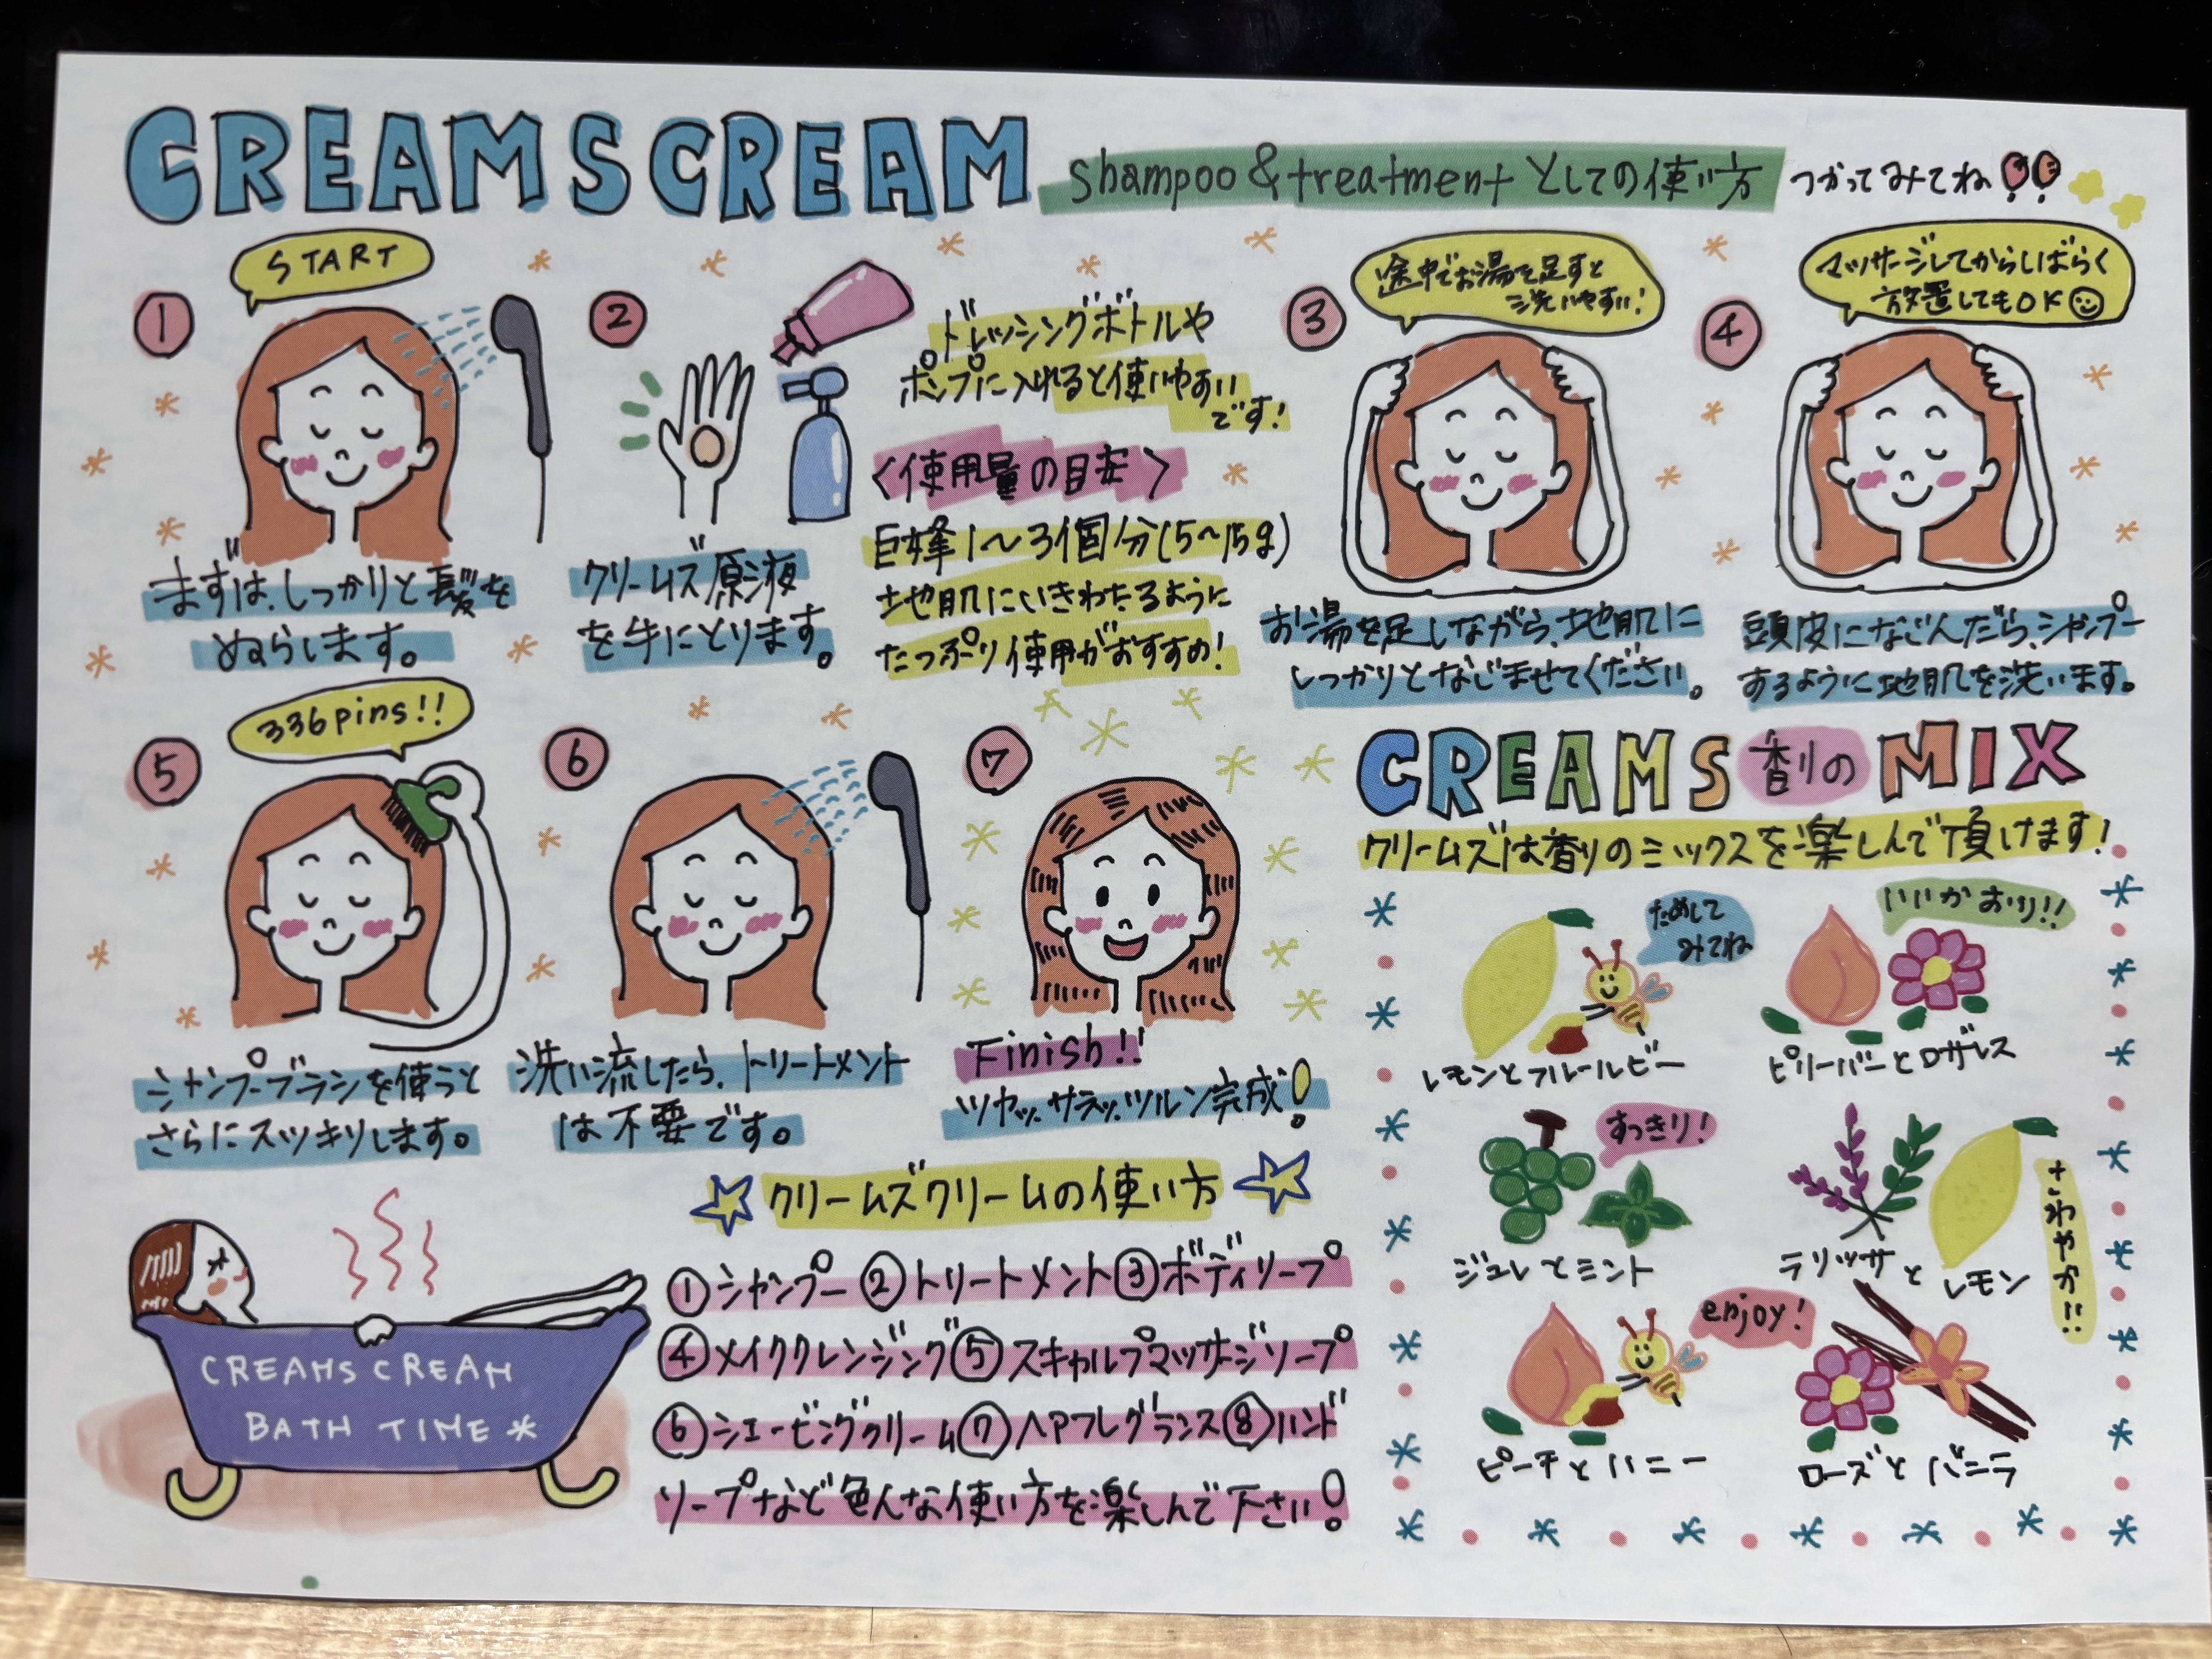 CREAMSCREAM
shampoo&treatmentとしての使い方
つかってみてね!!
①
START
まずは、しっかりと髪を
ぬらします。
②
ドレッシングボトルや
ポンプに入れると使いやすい
です!
〈使用量の目安〉
巨峰1〜3個分(5〜15g)
地肌にいきわたるように
たっぷり使用がおすすめ!
クリームズ原液
を手にとります。
③
途中でお湯を足すと
洗いやすい!
お湯を足しながら、地肌に
しっかりとなじませてください。
④
マッサージしてからしばらく
放置してもOK
頭皮になじんだら、シャンプー
するように地肌を洗います。
⑤
336pins!!
シャンプーブラシを使うと
さらにスッキリします。
⑥
洗い流したら、トリートメント
は不要です。
⑦
Finish!!
ツヤッ、サラッ、ツルン完成!
CREAMS香りのMIX
クリームズは香りのミックスを楽しんで頂けます!
ためして
みてね
レモンとフルールビー
いいかおり!!
ピリーバーとロザレス
すっきり!
ジュレとミント
さわやか!!
テリッサとレモン
enjoy!
ピーチとハニー
ローズとバニラ
クリームズクリームの使い方
①シャンプー②トリートメント③ボディソープ
④メイククレンジング⑤スキャルプマッサージソープ
⑥シェービングクリーム⑦ヘアフレグランス⑧ハンド
ソープなど色んな使い方を楽しんで下さい!
CREAMSCREAM
BATH TIME*